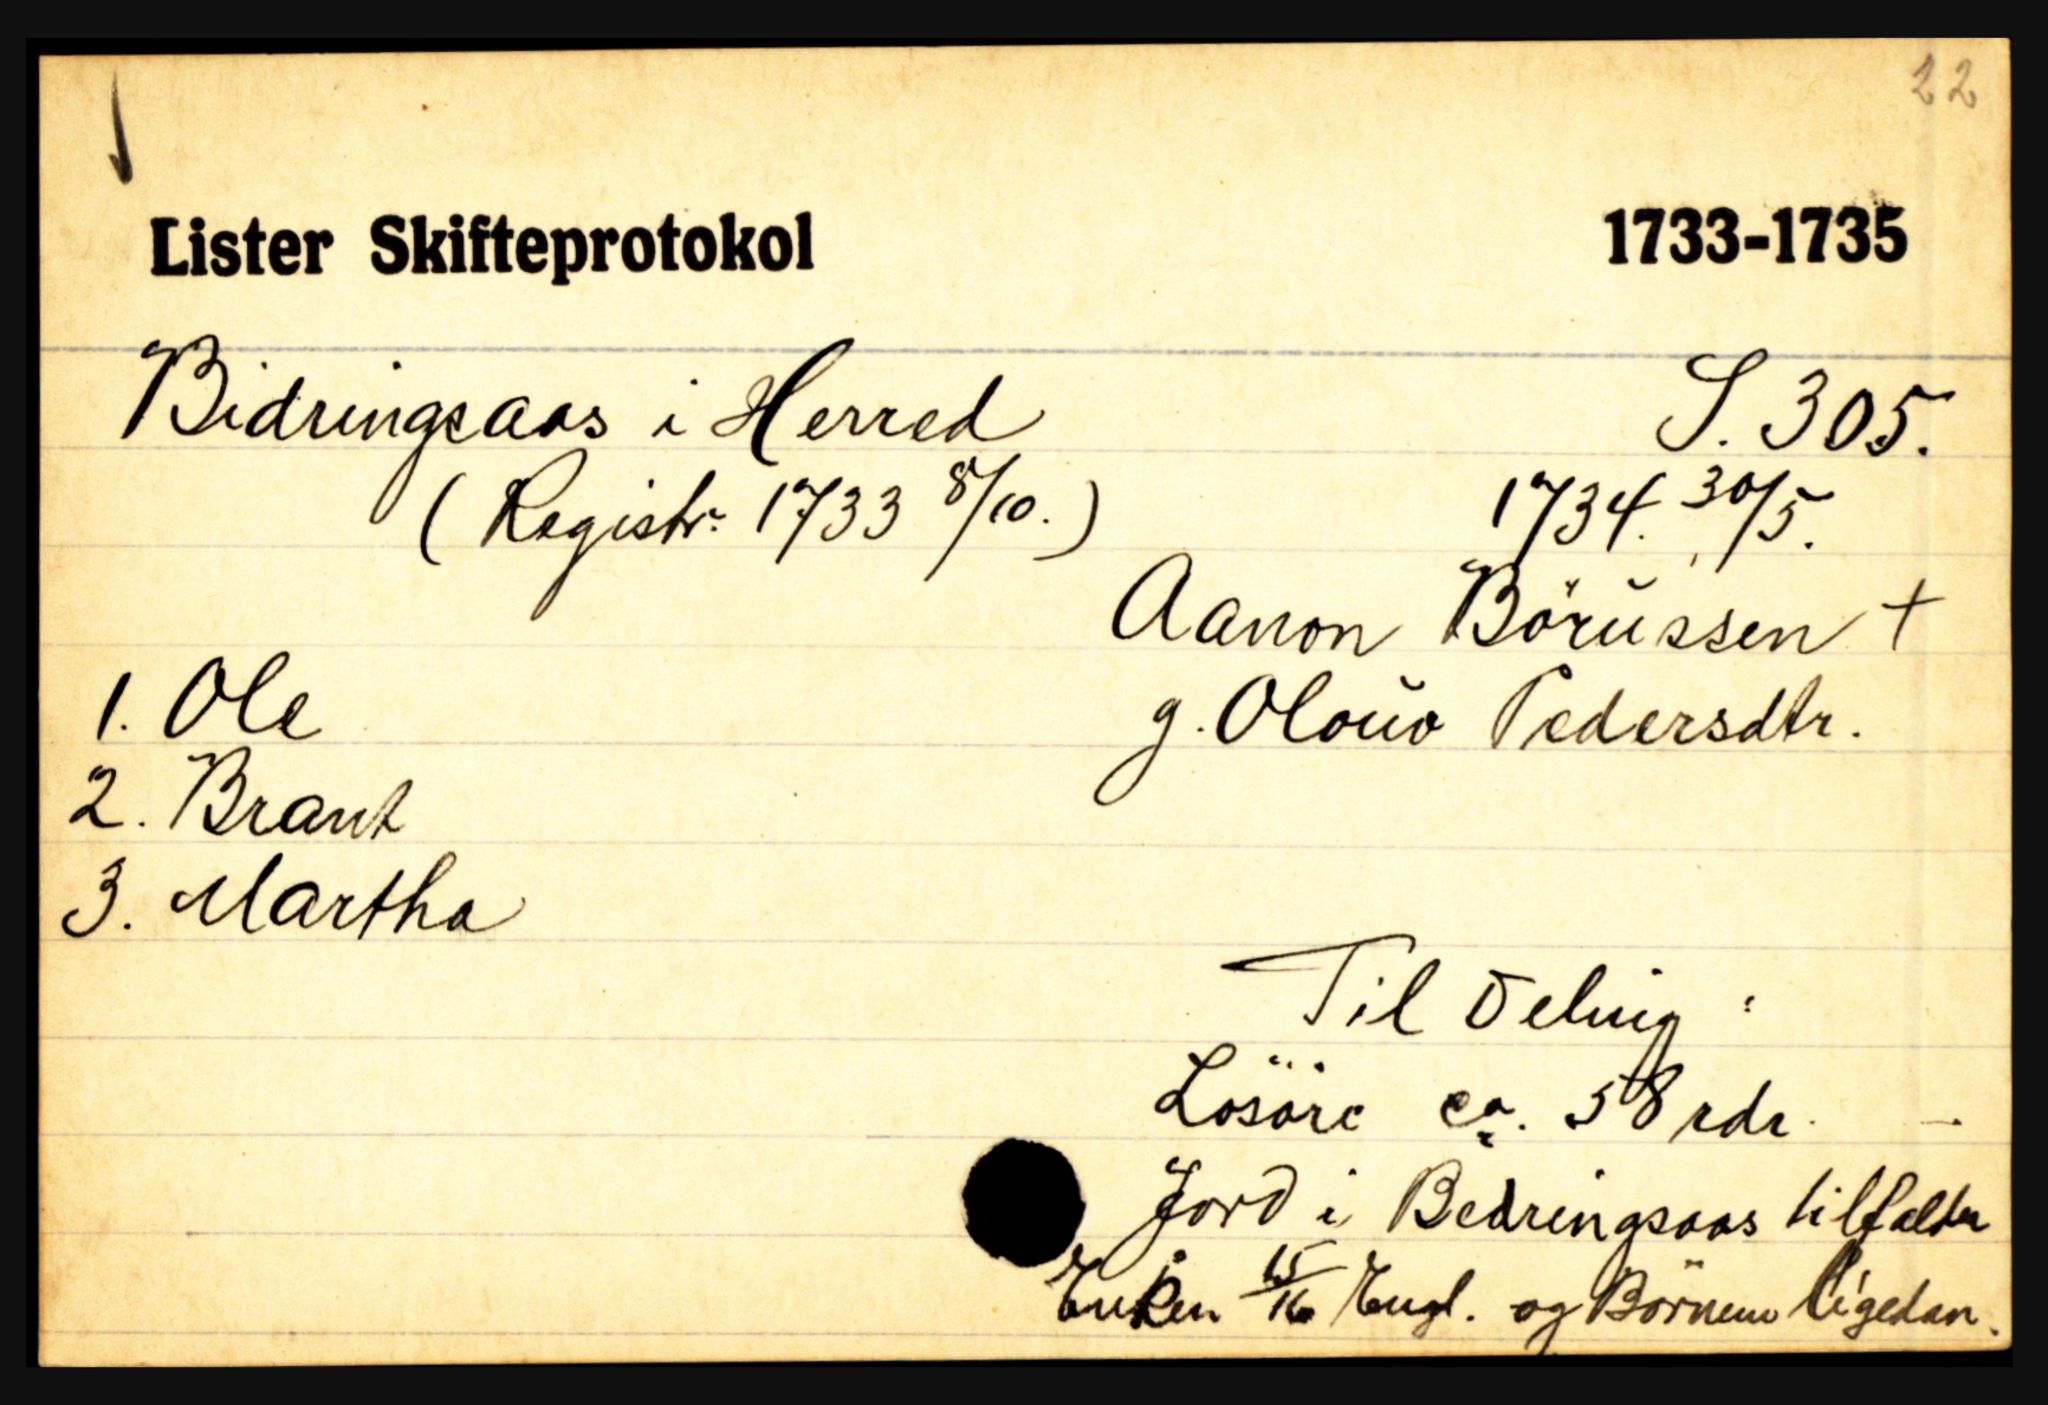 22
Lister Skifteprotokol 1733-1735
Bidringsaas i Herred S. 305.
(Registr. 1733 8/10.) 1734. 30/5.
Aanon Börŭssen +
1. Ole g. Oloŭv Pedersdtr.
2. Brant
3. Martha
Til Delnig:
Lösöre ca. 58 rdr.
Jord i Bedringsaas tilfalder
Enken 15/16 Engl. og Börnene ligedan.